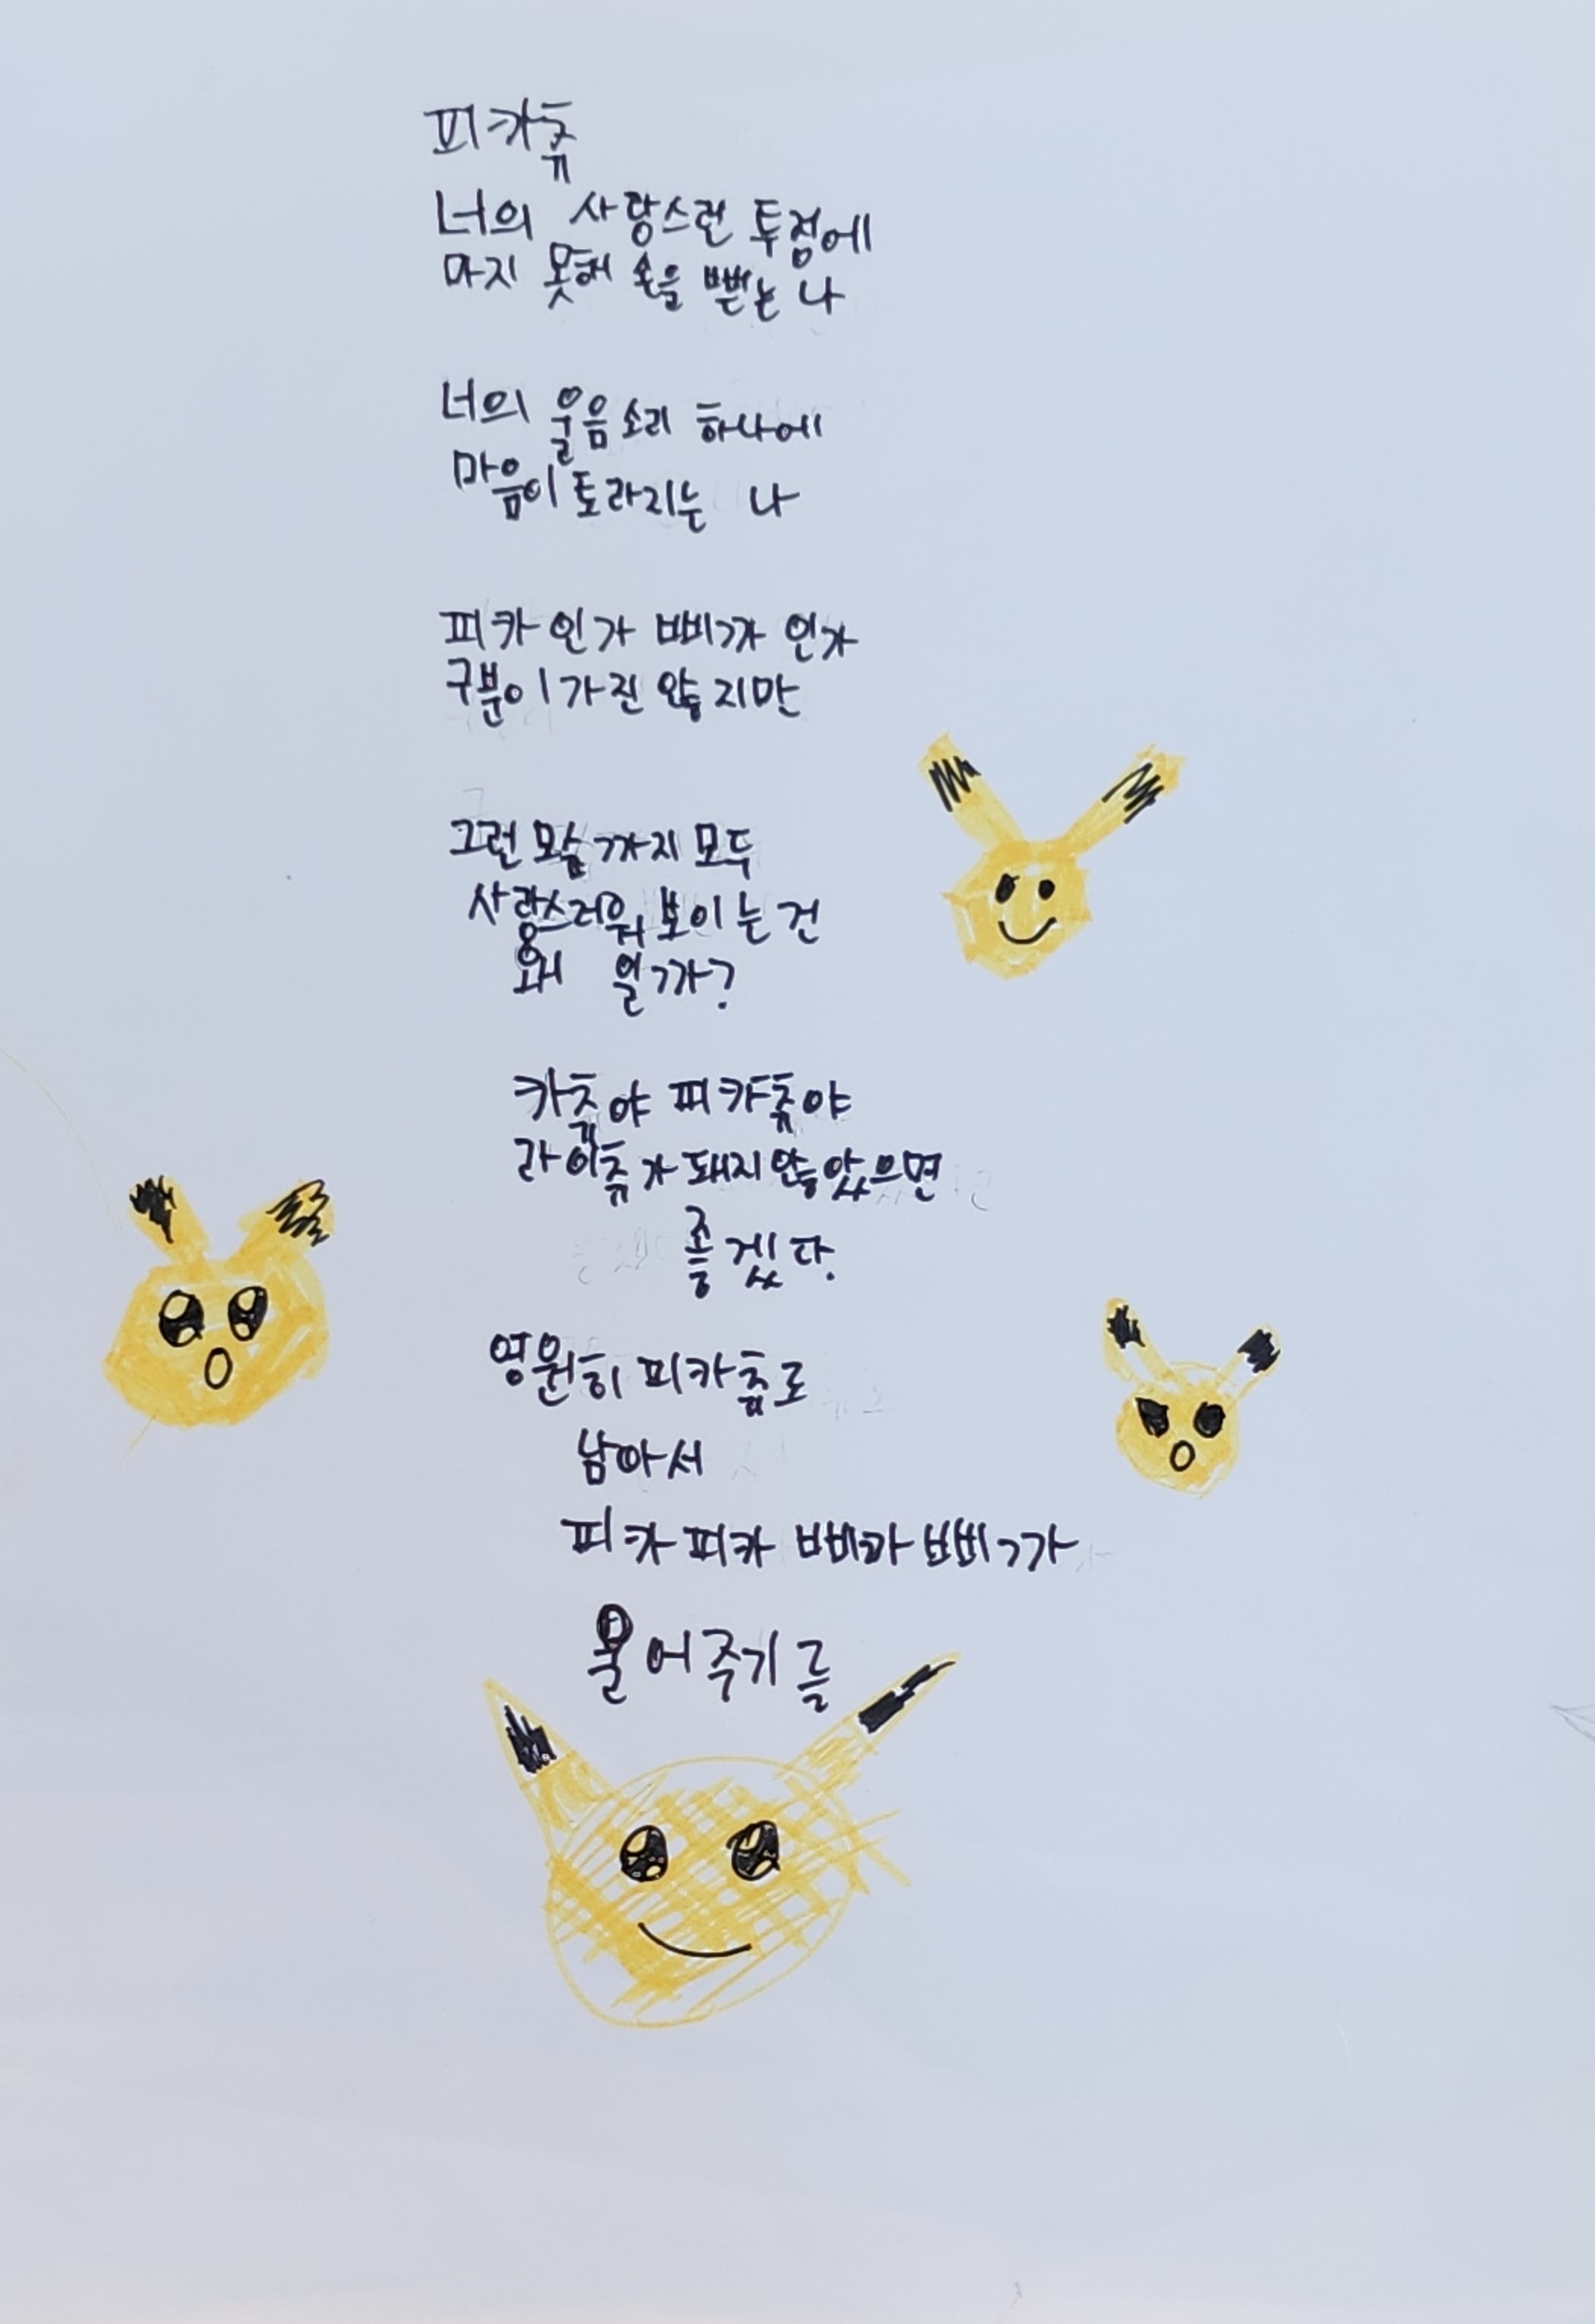 피카츄
너의 사랑스런 투정에
마지 못해 손을 뻗는 나
너의 울음소리 하나에
마음이 토라지는 나
피카인가 삐까인가
구분이 가진 않지만
그런 모습까지 모두
사랑스러워 보이는 건
왜 일까?
카츄야 피캬츄야
라이츄가 돼지 않았으면
좋겠다.
영원히 피카츄로
남아서
피카피카 삐까삐까
울어주기를